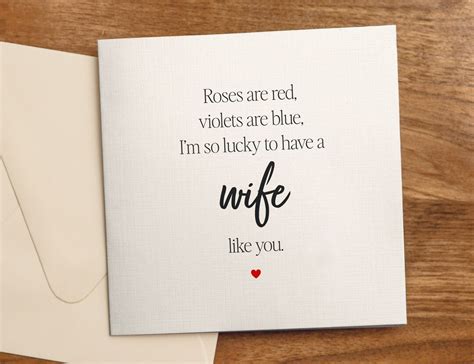 Roses are red,
violets are blue,
I'm so lucky to have a
wife
like you.